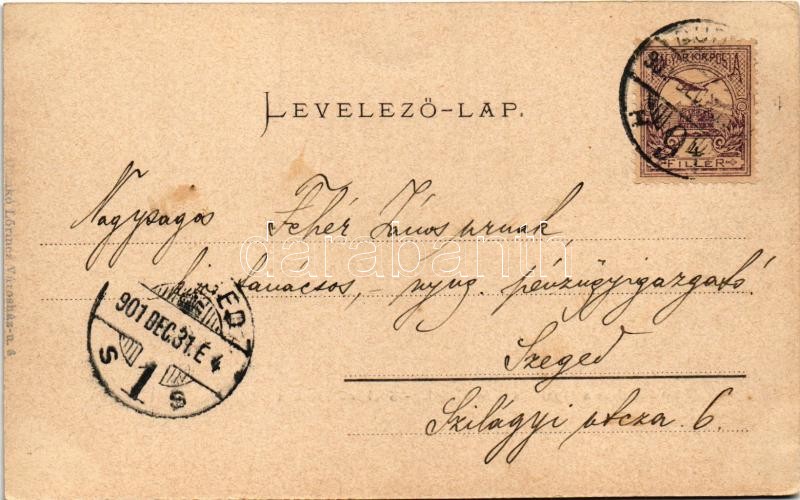 LEVELEZŐ-LAP.
MAGYAR KIR. POSTA
FILLÉR
Nagyságos Fehér János urnak
kir tanácsos, - nyug. pénzügyigazgató.
Szeged
Szilágyi utcza 6.
901 DEC. 31. É 4
S 1 S
Lőrincz Városház-u. 
darabanth